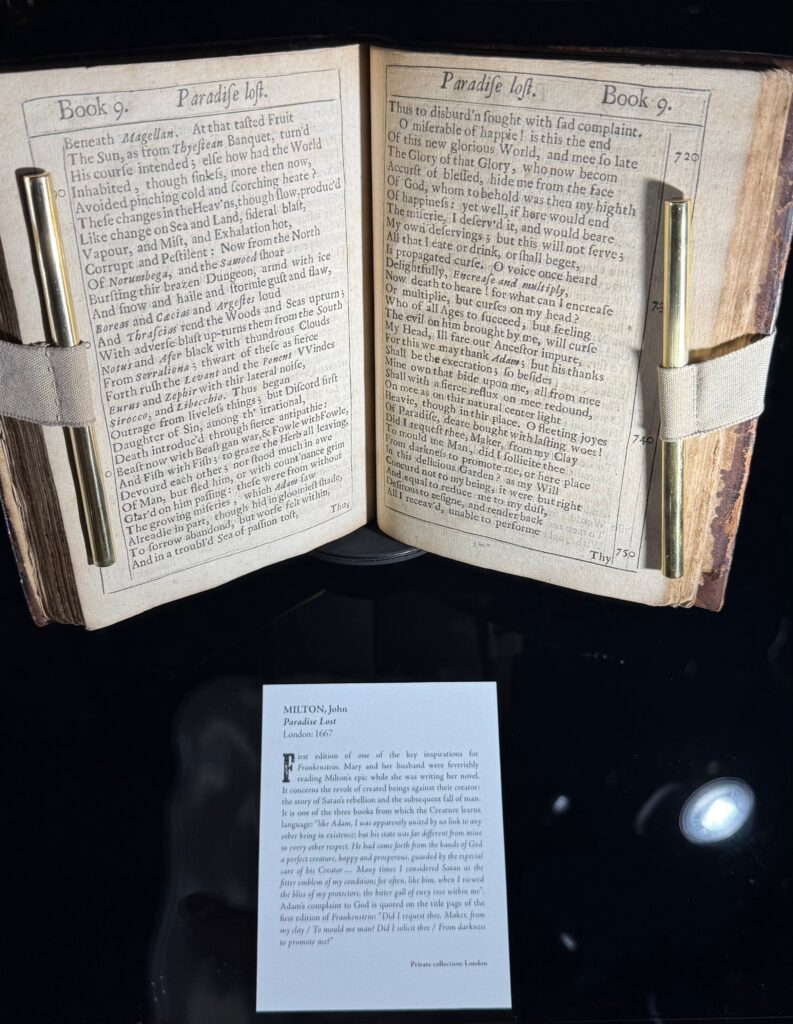 Book 9. Paradiſe loſt.
Beneath Magellan. At that taſted Fruit
The Sun, as from Thyeſtean Banquet, turn'd
His courſe intended; elſe how had the World
Inhabited, though ſinleſs, more then now,
Avoided pinching cold and ſcorching heate?
Theſe changes in the Heav'ns, though ſlow, produc'd
Like change on Sea and Land, ſideral blaſt,
Vapour, and Miſt, and Exhalation hot,
Corrupt and Peſtilent: Now from the North
Of Norumbega, and the Samoed ſhoar
Burſting thir brazen Dungeon, armd with ice
And ſnow and haile and ſtormie guſt and flaw,
Boreas and Cæcias and Argeſtes loud
And Thraſcias rend the Woods and Seas upturn;
With adverſe blaſt up-turns them from the South
Notus and Afer black with thundrous Clouds
From Serraliona; thwart of theſe as fierce
Forth ruſh the Levant and the Ponent VVindes
Eurus and Zephir with thir lateral noiſe,
Sirocco, and Libecchio. Thus began
Outrage from liveleſs things; but Diſcord firſt
Daughter of Sin, among th' irrational,
Death introduc'd through fierce antipathie:
Beaſt now with Beaſt gan war, & Fowle with Fowle,
And Fiſh with Fiſh; to graze the Herb all leaving,
Devourd each other; nor ſtood much in awe
Of Man, but fled him, or with count'nance grim
Glar'd on him paſſing: theſe were from without
The growing miſeries, which Adam ſaw
Alreadie in part, though hid in gloomieſt ſhade,
To ſorrow abandond, but worſe felt within,
And in a troubl'd Sea of paſſion toſt,
Thus
Paradiſe loſt. Book 9.
Thus to disburd'n ſought with ſad complaint.
O miſerable of happie! is this the end 720
Of this new glorious World, and mee ſo late
The Glory of that Glory, who now become
Accurſt of bleſſed, hide me from the face
Of God, whom to behold was then my highth
Of happineſs: yet well, if here would end
The miſerie, I deſerv'd it, and would beare
My own deſervings; but this will not ſerve;
All that I eate or drink, or ſhall beget,
Is propagated curſe. O voice once heard
Delightfully, Encreaſe and multiply,
Now death to heare! for what can I encreaſe
Or multiplie, but curſes on my head?
Who of all Ages to ſucceed, but feeling
The evil on him brought by me, will curſe
My Head, Ill fare our Anceſtor impure,
For this we may thank Adam; but his thanks
Shall be the execration; ſo beſides
Mine own that bide upon me, all from mee
Shall with a fierce reflux on mee redound,
On mee as on thir natural center light 740
Heavie, though in thir place. O fleeting joyes
Of Paradiſe, deare bought with laſting woes!
Did I requeſt thee, Maker, from my Clay
To mould me Man, did I ſollicite thee
From darkneſs to promote me, or here place
In this delicious Garden? as my Will
Concurd not to my being, it were but right
And equal to reduce me to my duſt,
Deſirous to reſigne, and render back
All I receav'd, unable to performe 750
Thy
MILTON, John
Paradise Lost
London: 1667
First edition of one of the key inspirations for
Frankenstein. Mary and her husband were feverishly
reading Milton's epic while she was writing her novel.
It concerns the revolt of created beings against their creator:
the story of Satan's rebellion and the subsequent fall of man.
It is one of the three books from which the Creature learns
language: "like Adam, I was apparently united by no link to any
other being in existence; but his state was far different from mine
in every other respect. He had come forth from the hands of God
a perfect creature, happy and prosperous, guarded by the especial
care of his Creator… Many times I considered Satan as the
fitter emblem of my condition; for often, like him, when I viewed
the bliss of my protectors, the bitter gall of envy rose within me".
Adam's complaint to God is quoted on the title page of the
first edition of Frankenstein: "Did I request thee, Maker, from
my clay / To mould me man? Did I solicit thee / From darkness
to promote me?"
Private collection: London